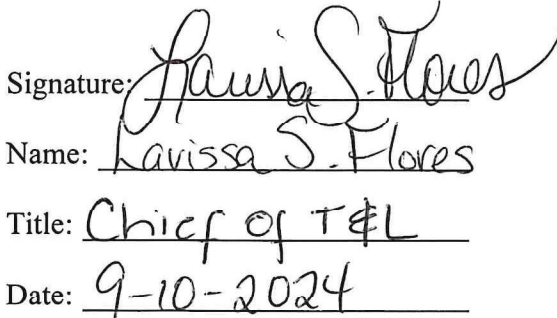 Signature: Larissa S. Flores
Name: Larissa S. Flores
Title: Chief of T&L
Date: 9-10-2024